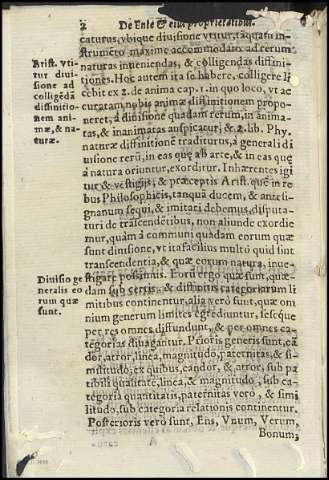 2 De Ente & eius proprietatibus.
caturus, vbique diuisione vtitur, tāquam in
strumēto maxime accommodato ad rerum
naturas inueniendas, & colligendas diffini-
tiones. Hoc autem ita se habere, colligere li
cebit ex 2. de anima cap. 1. in quo loco, vt ac
curatam nobis animæ diffinitionem propo-
neret, à diuisione quadam rerum, in anima-
tas, & inanimatas auspicatur; & 2. lib. Phy.
naturæ diffinitionē traditurus, à generali di
uisione rerū, in eas quę ab arte, & in eas quę
à natura oriuntur, exorditur. Inhærentes igi
tur & vestigijs, & præceptis Arist. quē in re
bus Philosophicis, tanquā ducem, & ante si-
gnanum sequi, & imitari debemus, disputa-
turi de trāscedētibus, non aliunde exordie
mur, quàm à communi quadam eorum quæ
sunt diuisione, vt ita facilius multò quid sint
transcendentia, & quæ eorum natura, inue-
stigare possimus. Eorū ergo quæ sunt, quæ-
dam sub certis & distinctis categoriarum li
mitibus continentur, alia vero sunt, quæ om
nium generum limites egrediuntur, seseque
per res omnes diffundunt, & per omnes ca-
tegorias diuagantur. Prioris generis sunt, cā
dor, atror, linea, magnitudo, paternitas, & si-
militudo, ex quibus, candor, & atror, sub pa
tibili qualitate, linea, & magnitudo, sub ca-
tegoria quantitatis, paternitas vero, & simi
litudo, sub categoria relationis continentur.
Posterioris vero sunt, Ens, Vnum, Verum,
Bonum,
Arist. vti-
tur diui-
sione ad
colligēdā
diffinitio-
nem ani-
mæ, & na-
turæ.
Diuisio ge
neralis eo
rum quæ
sunt.